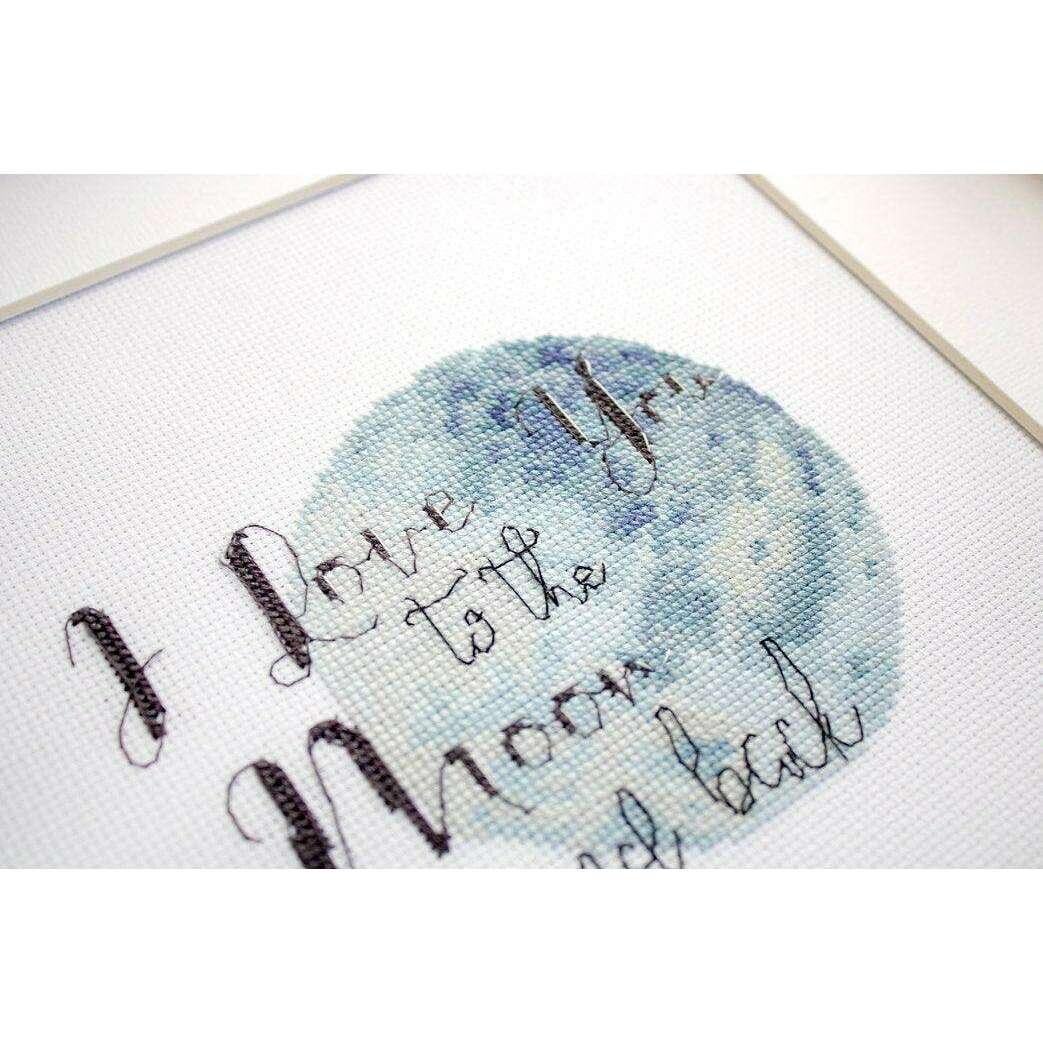 I Love You
to the
Moon
and back